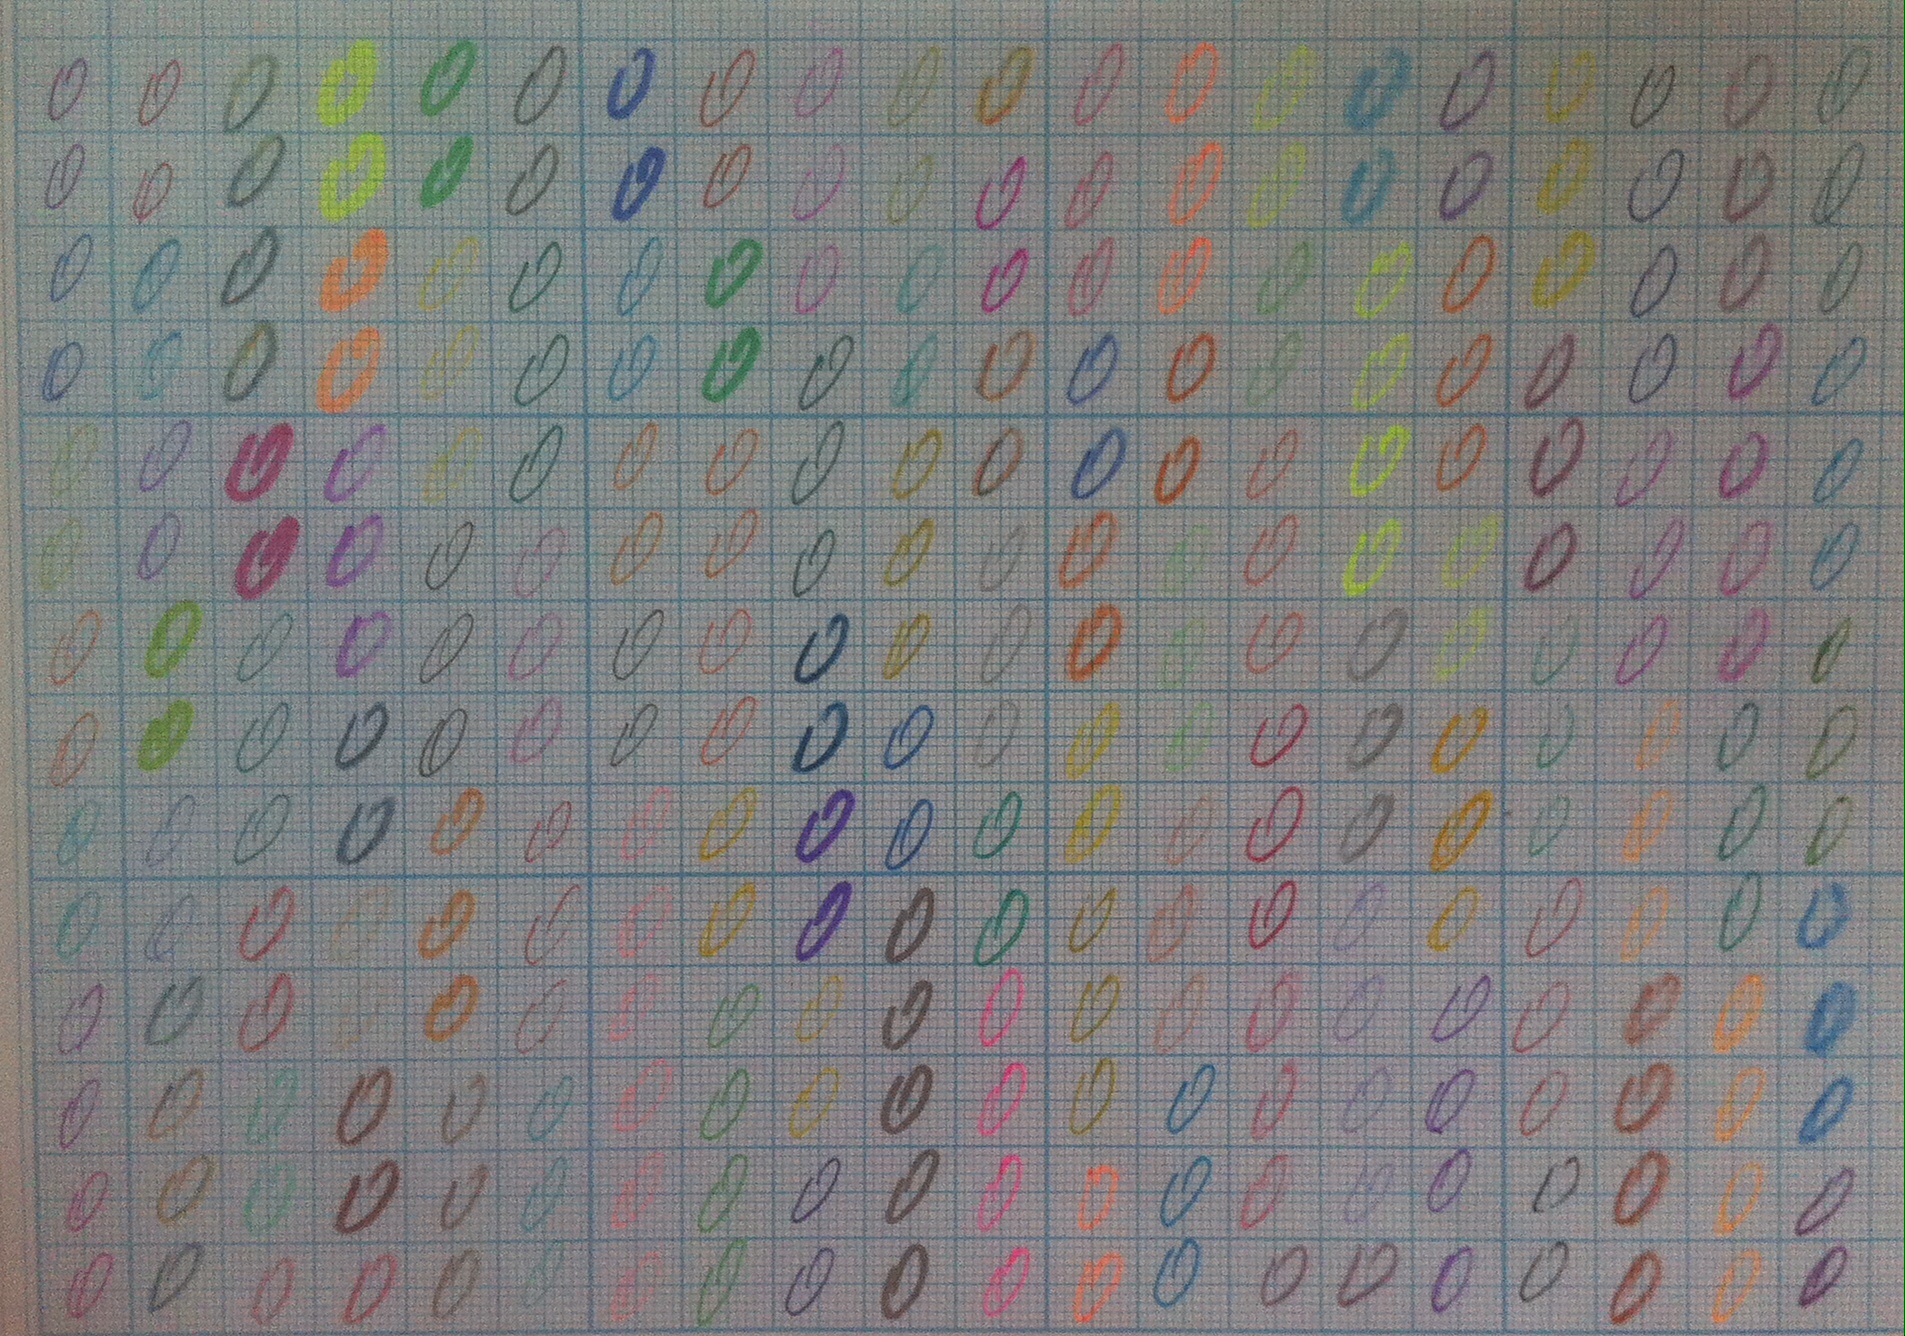 0 0 0 0 0 0 0 0 0 0 0 0 0 0 0 0 0 0 0 0
0 0 0 0 0 0 0 0 0 0 0 0 0 0 0 0 0 0 0 0
0 0 0 0 0 0 0 0 0 0 0 0 0 0 0 0 0 0 0 0
0 0 0 0 0 0 0 0 0 0 0 0 0 0 0 0 0 0 0 0
0 0 0 0 0 0 0 0 0 0 0 0 0 0 0 0 0 0 0 0
0 0 0 0 0 0 0 0 0 0 0 0 0 0 0 0 0 0 0 0
0 0 0 0 0 0 0 0 0 0 0 0 0 0 0 0 0 0 0 0
0 0 0 0 0 0 0 0 0 0 0 0 0 0 0 0 0 0 0 0
0 0 0 0 0 0 0 0 0 0 0 0 0 0 0 0 0 0 0 0
0 0 0 0 0 0 0 0 0 0 0 0 0 0 0 0 0 0 0 0
0 0 0 0 0 0 0 0 0 0 0 0 0 0 0 0 0 0 0 0
0 0 0 0 0 0 0 0 0 0 0 0 0 0 0 0 0 0 0 0
0 0 0 0 0 0 0 0 0 0 0 0 0 0 0 0 0 0 0 0
0 0 0 0 0 0 0 0 0 0 0 0 0 0 0 0 0 0 0 0